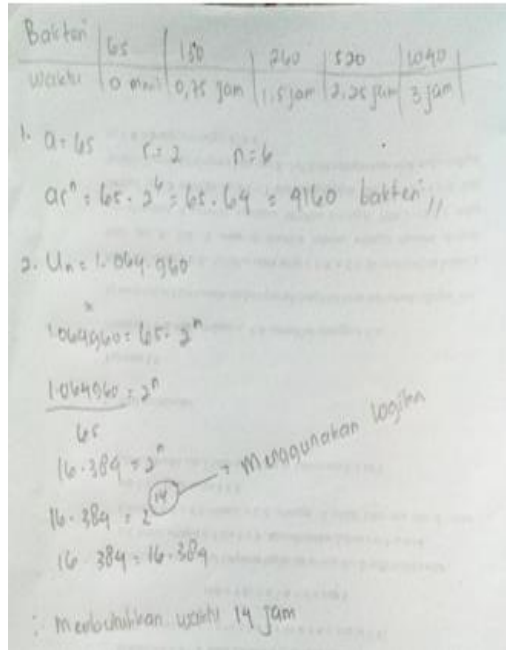 Bakteri | 65 | 130 | 260 | 520 | 1040
waktu | 0 menit | 0,75 jam | 1,5 jam | 2,25 jam | 3 jam
1. a = 65 r = 2 n = 6
ar^n = 65 . 2^6 = 65 . 64 = 4160 bakteri //
2. Un = 1.064.960
1064960 = 65 . 2^n
1.064960 = 2^n
65
16.384 = 2^n
16.384 = 2^14 → Menggunakan logika
16.384 = 16.384
∴ Membutuhkan waktu 14 jam